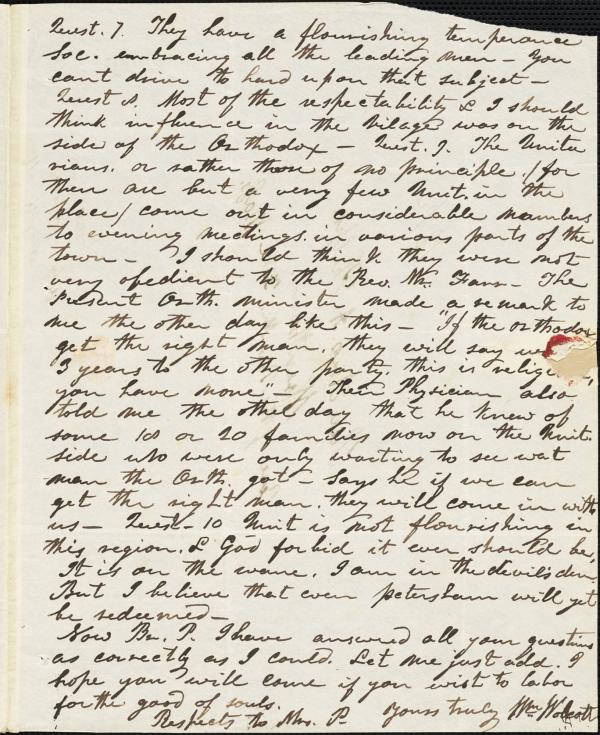 Quest. 7. They have a flourishing temperance
Soc. embracing all the leading men – You
cant drive to hard upon that subject –
Quest 8. Most of the respectability & I should
think influence in the vilage was on the
side of the Orthodox – Quest. 9. The Unita
rians. or rather those of no principle (for
there are but a very few Unit. in the
place) come out in considerable numbers
to evening meetings. in various parts of the
town – I should think they were not
very obedient to the Rev. Mr. Farr – The
present Orth. minister made a remark to
me the other day like this – "If the orthodox
get the right man, they will say
3 years to the other party, this is
you have none" – Their Physician also
told me the other day that he knew of
some 18 or 20 families now on the Unit.
side who were only waiting to see wat
man the Orth. got – Says he if we can
get the right man. they will come in with
us – Quest – 10 Unit is not flourishing in
this region. & God forbid it ever should be,
It is on the wane. I am in the devil's den,
But I believe that even petersham will yet
be redeemed –
Now Br. P. I have answered all your questions
as correctly as I could. Let me just add. I
hope you will come if you wist to labor
for the good of souls.
Respects to Mrs. P. Yours truly Wm Wolcott